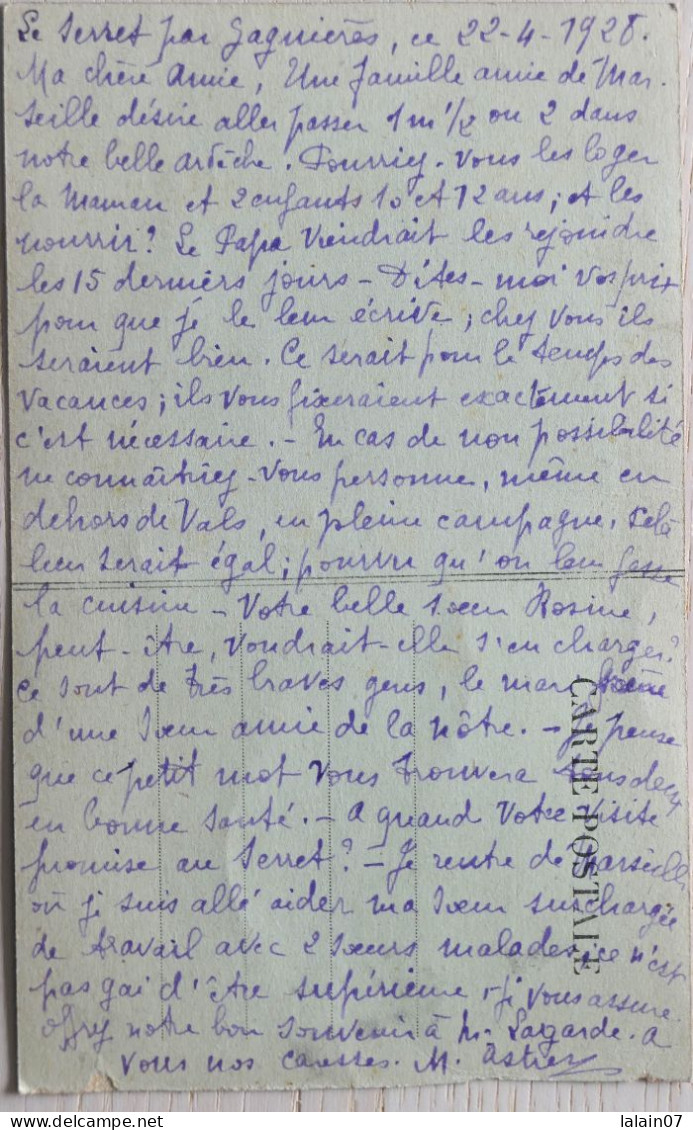 Le Serret par Gagnières, ce 22-4-1928.
Ma chère Amie, Une famille amie de Mar-
seille désire aller passer 1m 1/2 ou 2 dans
notre belle ardèche. Pourriez-vous les loger
la Maman et 2 enfants 10 et 12 ans; et les
nourrir? Le Papa viendrait les rejoindre
les 15 derniers jours - Dites-moi vos prix
pour que je le leur écrive; chez vous ils
seraient bien. Ce serait pour le temps des
vacances; ils vous fixeraient exactement si
c'est nécessaire. - En cas de non possibilité
ne connaîtriez-vous personne, même en
dehors de Vals, en pleine campagne, cela
leur serait égal; pourvu qu'on leur fasse
la cuisine - Votre belle sœur Rosine,
peut-être, voudrait-elle s'en charger?
Ce sont de très braves gens, le mari frère
d'une sœur amie de la nôtre. - Je pense
que ce petit mot vous trouvera tous deux
en bonne santé. - A quand votre visite
promise au Serret? - Je rentre de Marseille
où je suis allé aider ma sœur surchargée
de travail avec 2 sœurs malades, ce n'est
pas gai d'être supérieure, je vous assure
Offrez notre bon souvenir à M. Lagarde. a
vous nos caresses. M. Astier
CARTE POSTALE
lalain07